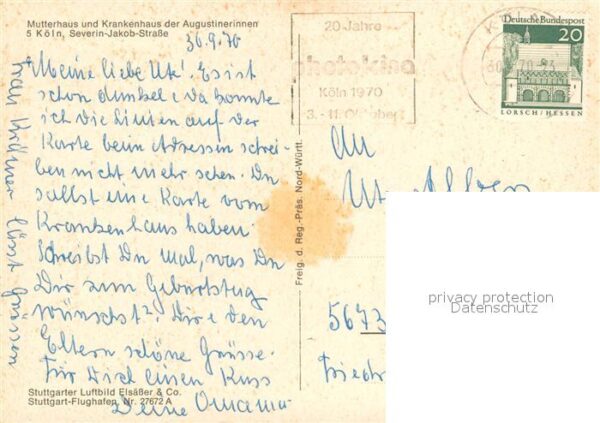 Mutterhaus und Krankenhaus der Augustinerinnen
5 Köln, Severin-Jakob-Straße
30.9.70
Meine liebe Ute! Es ist
schon dunkel & da konnte
ich die Linien auf der
Karte beim Adressen schrei-
ben nicht mehr sehen. Du
sollst eine Karte vom
Krankenhaus haben.
Schreibst Du mal, was Du
Dir zum Geburtstag
wünschst? Dir & den
Eltern schöne Grüsse.
Für Dich einen Kuss
Deine Omama
Frau
lässt Grüssen
Stuttgarter Luftbild Elsäßer & Co.
Stuttgart-Flughafen, Nr. 27672 A
Freig. d. Reg.-Präs. Nord-Württ.
20 Jahre
photokina
Köln 1970
3.-11. Oktober
KÖLN
Deutsche Bundespost
20
LORSCH/HESSEN
An
5673
privacy protection
Datenschutz